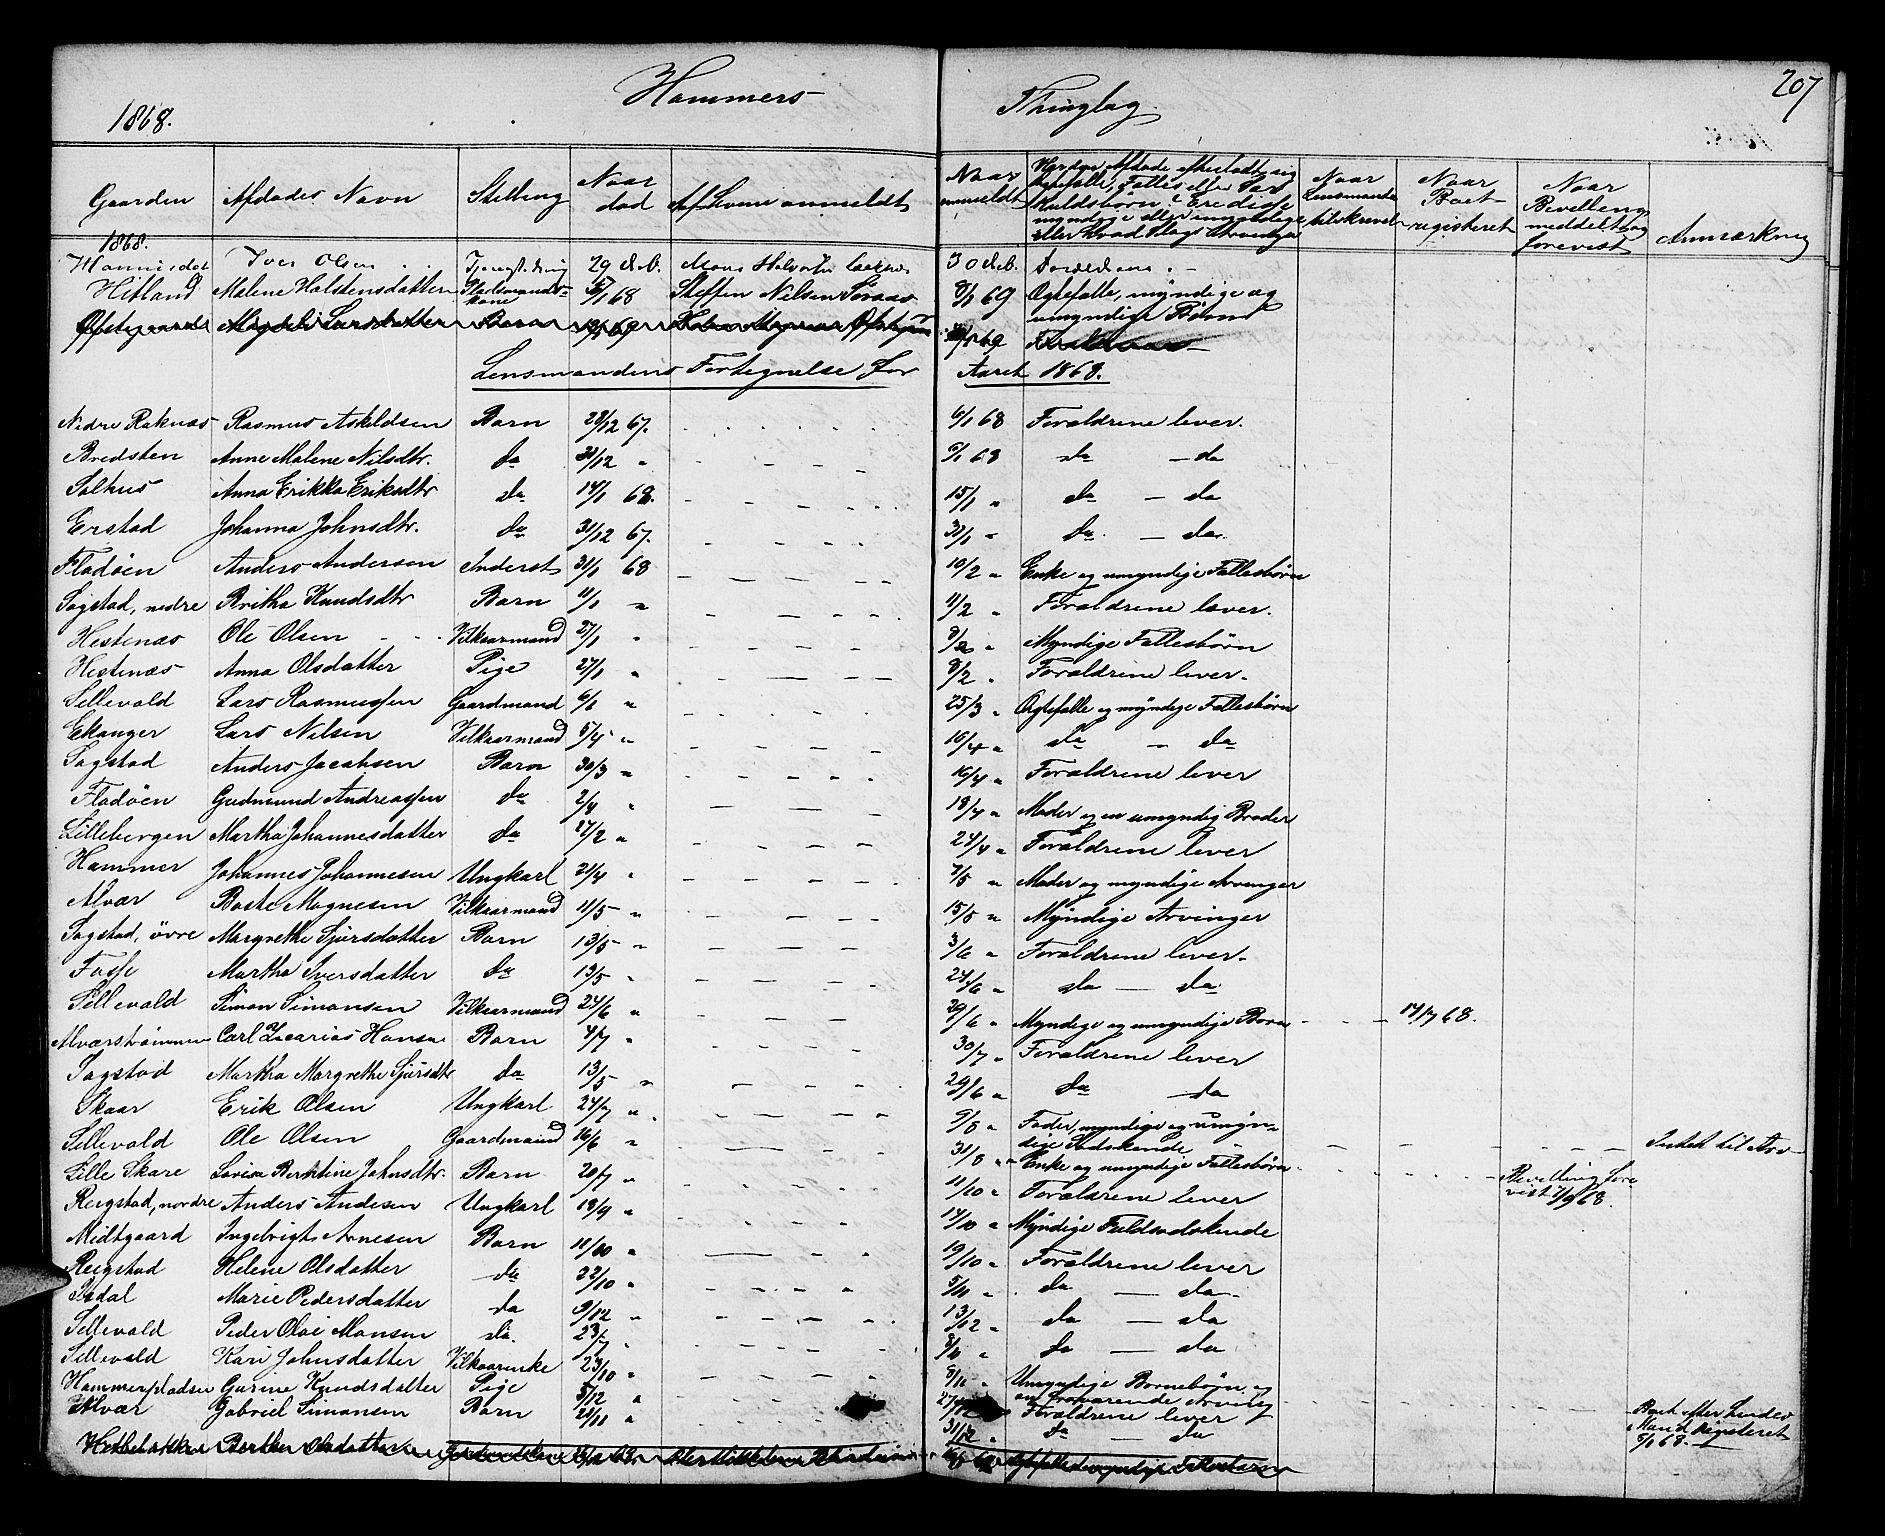 207
Hammers Thinglag.
1868.
Gaarden Afdødes Navn Stilling Naar død Af hvem anmeldt Naar anmeldt Naar Lensmanden tilskrevet Naar Boet registeret Naar Bevilling meddelt og forevist Anmærkning
1868.
Iver Olsen 29 deb. Mons 30 deb. Forældrene
Hitland Malene Halstensdatter 68 Steffen Nilsen 8/1 69 Ægtefælle, myndige og
umyndige Børn
Lensmandens Fortegnelse for Aaret 1868.
Nedre Raknæs Rasmus Askildsen Barn 28/12 67. 6/1 68 Forældrene lever.
Bredsten Anne Malene Nilsdtr. do 31/12 " 6/1 68 do - do
Salhus Anna Erikka Eriksdtr do 14/1 68. 15/1 " do - do
Erstad Johanna Johnsdtr. do 31/12 67. 31/1 " do - do
Fladøen Anders Andersen Inderst 31/1 68 10/2 " Enke og umyndige Fællesbørn
Sagstad, nedre Britha Knudsdtr Barn 11/1 " 11/2 " Forældrene lever.
Hestenæs Ole Olsen Vilkaarmand 27/1 " 8/2 " Myndige Fællesbørn
Hestenæs Anna Olsdatter Pige 27/1 " 8/2 " Forældrene lever.
Sellevold Lars Rasmussen Gaardmand 6/1 " 25/3 " Ægtefælle og myndige Fællesbørn
Ekanger Lars Nilsen Vilkaarmand 5/4 " 16/4 " do - do
Sagstad Anders Jacobsen Barn 30/3 " 16/4 " Forældrene lever
Fladøen Gudmund Andreassen do 2/4 " 18/4 " Moder og en umyndig Broder
Lillebergen Martha Johannesdatter do 27/2 " 24/4 " Forældrene lever
Hammer Johannes Johannesen Ungkarl 21/4 " 7/5 " Moder og myndige Arvinger
Alvær Baste Magnesen Vilkaarmand 11/5 " 15/5 " Myndige Arvinger
Sagstad, øvre Margrethe Sjursdatter Barn 13/5 " 3/6 " Forældrene lever.
Fosse Martha Iversdatter do 13/5 " 24/6 " do - do
Sellevold Simon Simonsen Vilkaarmand 24/6 " 29/6 " Myndige og umyndige Børn 17/7 68.
Alværstrømmen Carl Zacarias Hansen Barn 4/7 " 30/7 " Forældrene lever
Sagstad Martha Margrethe Sjursdtr do 13/5 " 29/6 " do - do
Skaar Erik Olsen Ungkarl 24/7 " 9/8 " Fader, myndige og umyn-
dige Sødskende
Sellevold Ole Olsen Gaardmand 16/6 " 31/8 " Enke og umyndige Fællesbørn Bevilling fore-
vist 7/9 68.
Intet til Arv
Lille Skare Lovise Berntine Johnsdtr. Barn 20/7 " 11/10 " Forældrene lever
Reigstad, nordre Anders Andersen Ungkarl 18/9 " 14/10 " Myndige Fuldsødskende
Midtgaard Ingebrigt Arnesen Barn 11/10 " 19/10 " Forældrene lever
Reigstad Helene Olsdatter do 22/10 " 5/11 " do - do
Isdal Marie Pedersdatter do 9/12 " 13/12 " do - do
Sellevold Peder Olai Monsen do 23/7 " 8/11 " do - do
Sellevold Kari Johnsdatter Vilkaarenke 23/10 " 8/11 " Umyndige Børnebørn og
en fraværende Arving
Hammerpladsen Gurine Knudsdatter Pige 5/12 " Forældrene lever
Alvær Gabriel Simonsen Barn 28/11 " 31/12 " do - do
Boet efter hendes
Mand registeret
6/1 68.